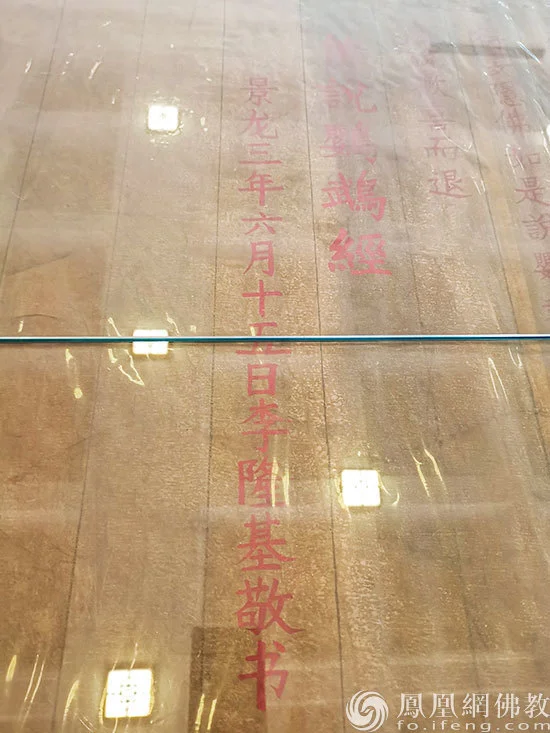 佛如是說
喜而退
說鸚鵡經
景龙三年六月十五日李隆基敬书
鳳凰網佛教
fo.ifeng.com